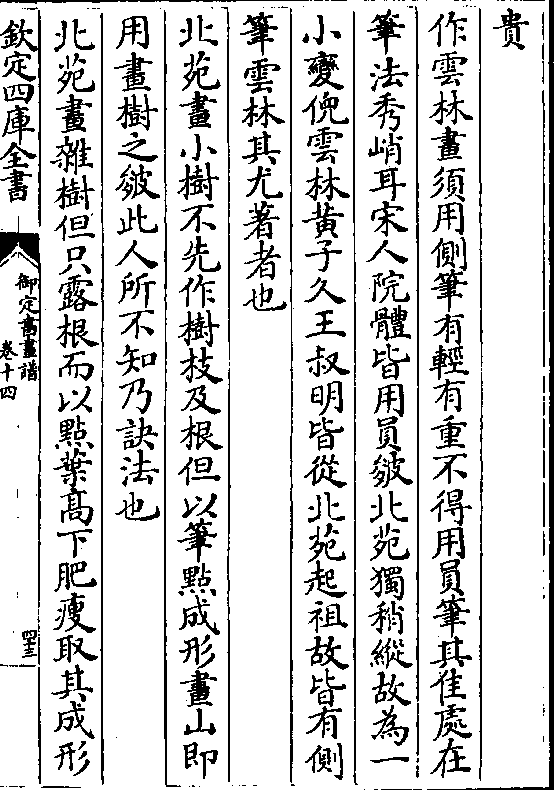 貴
作雲林畫須用側筆有輕有重不得用員筆其佳處在
筆法秀峭耳宋人院體皆用員皴北苑獨稍縱故為一
小變倪雲林黃子久王叔明皆從北苑起祖故皆有側
筆雲林其尤著者也
北苑畫小樹不先作樹枝及根但以筆點成形畫山即
用畫樹之皴此人所不知乃訣法也
北苑畫雜樹但只露根而以點葉高下肥瘦取其成形
欽定四庫全書
御定書畫譜
卷十四
四三